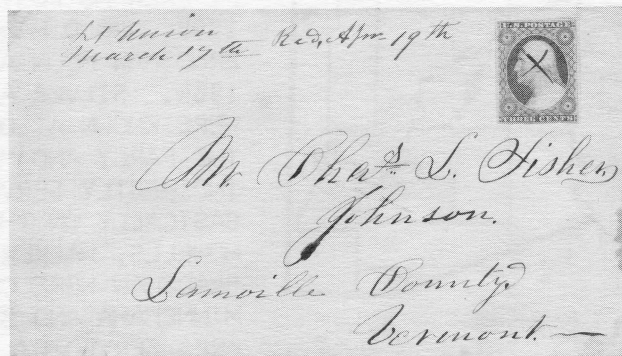 Ft Union
March 17th Recd, Apr. 19th
U.S. POSTAGE
THREE CENTS
Mr. Chas. L. Fisher,
Johnson.
Lamoille County,
Vermont.—